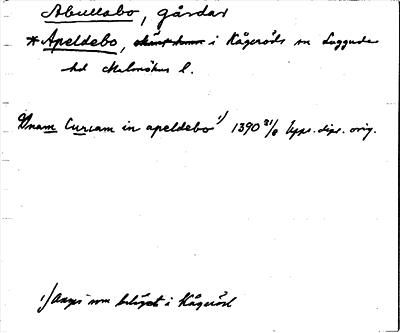 Abullabo, gårdar
*Apeldebo, i Kågeröds sn Luggude
hd Malmöhus l.
Vnam Curiam in apeldebo 1) 1390 21/8 Upps. dipl. orig.
1) Anges som beläget i Kågeröd